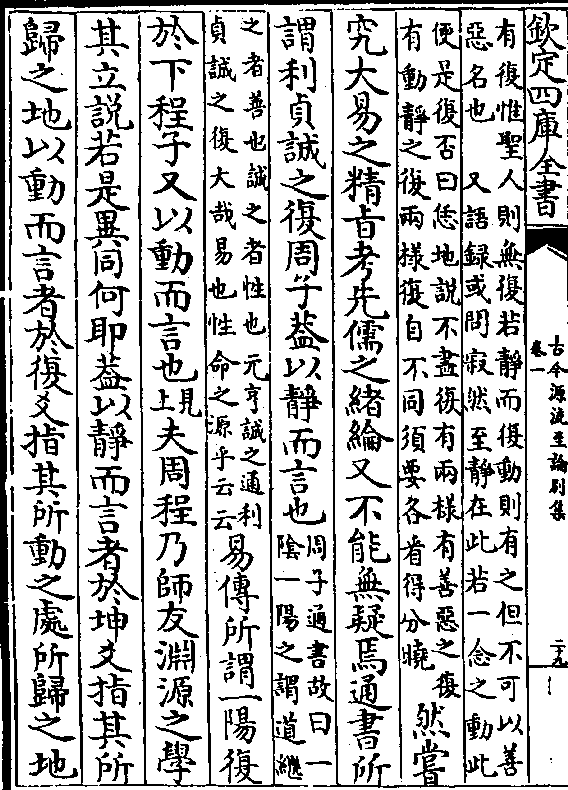 欽定四庫全書
古今源流至論别集
卷一
二十九
有復惟聖人則無復若靜而復動則有之但不可以善
惡名也　又語録或問寂然至靜在此若一念之動此
便是復否曰恁地説不盡復有兩様有善惡之復
有動靜之復兩様復自不同須要各看得分曉
然嘗
究大易之精旨考先儒之緒綸又不能無疑焉通書所
謂利貞誠之復周子葢以靜而言也
周子通書故曰一
陰一陽之謂道繼
之者善也誠之者性也元亨誠之通利
貞誠之復大哉易也性命之源乎云云
易傳所謂一陽復
於下程子又以動而言也見上夫周程乃師友淵源之學
其立説若是異同何耶葢以靜而言者於坤爻指其所
歸之地以動而言者於復爻指其所動之處所歸之地